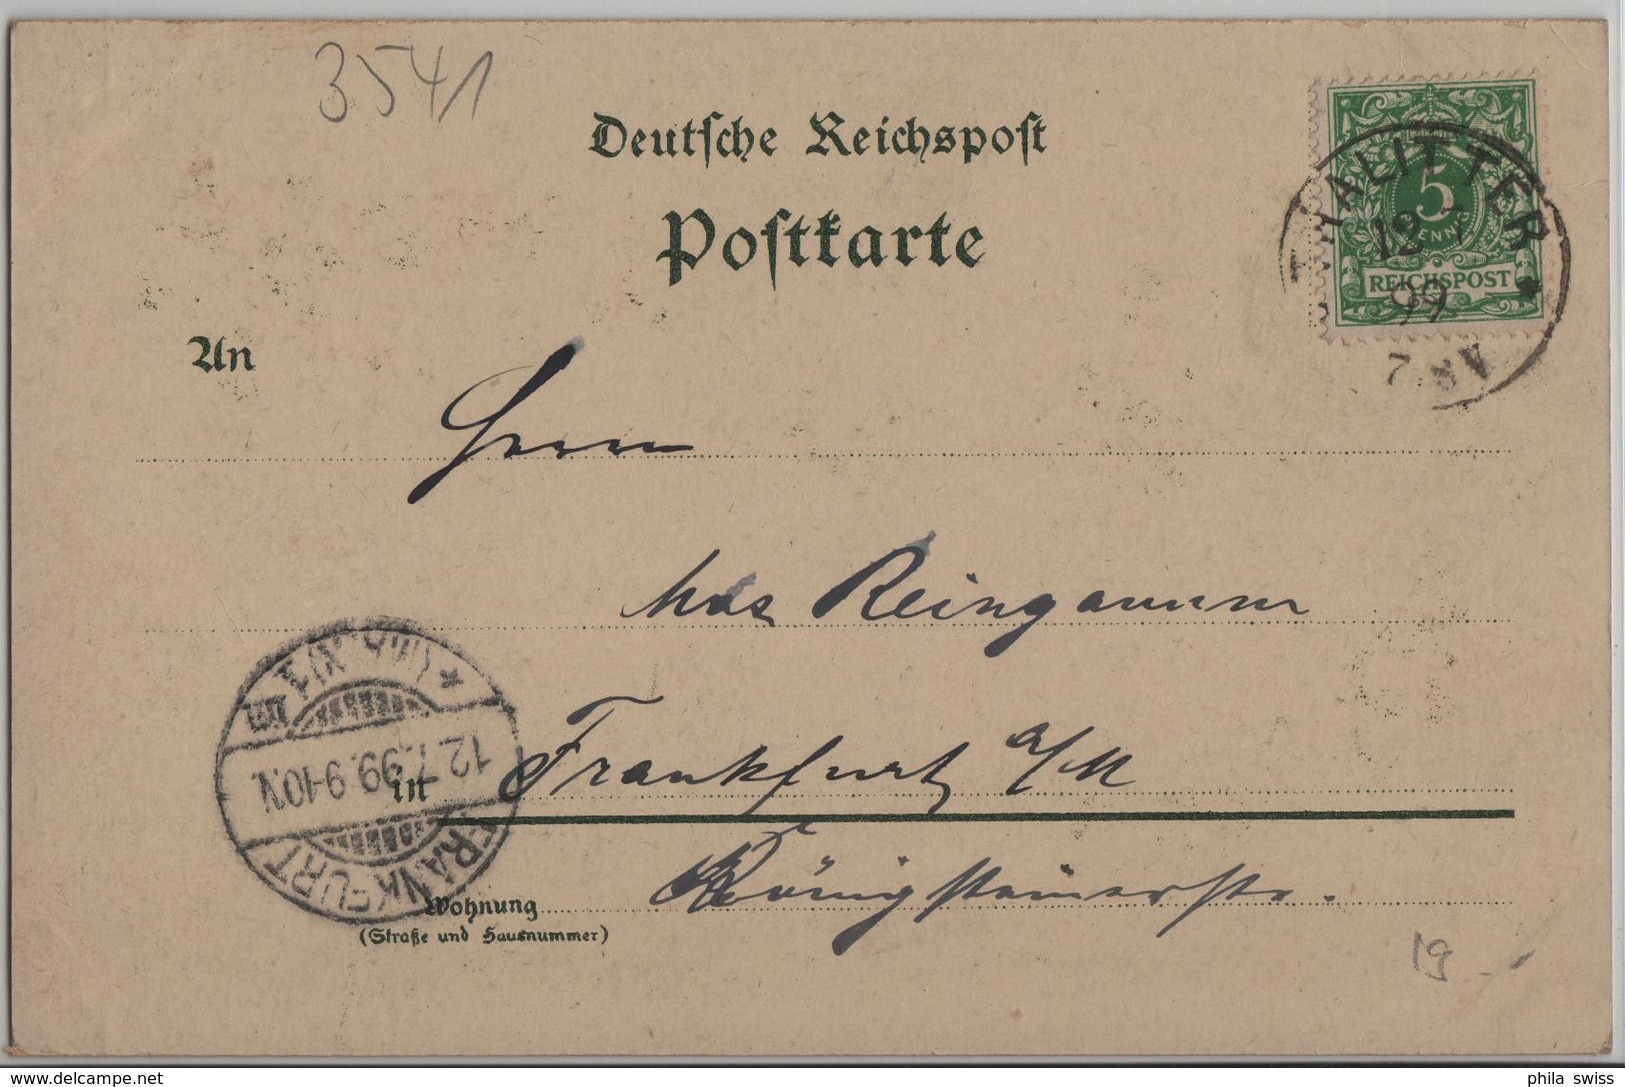 3541
Deutsche Reichspost
Postkarte
5
PFENNIG
REICHSPOST
THALITTER
12 7
99
7 8 V
An
Herrn
Max Reinganum
in Frankfurt a/M
Königsteinerstr.
Wohnung
(Straße und Hausnummer)
FRANKFURT
12.7.99. 9-10.V.
* (MAIN) 1
19
delcampe.net
phila_swiss